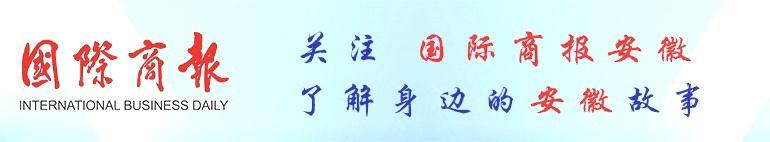 國際商報
INTERNATIONAL BUSINESS DAILY
关注 国际商报安徽
了解身边的安徽故事